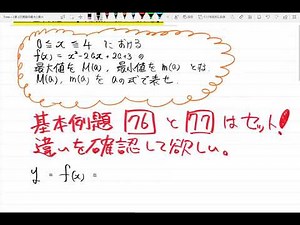 0≦x≦4 における
f(x)=x²-2ax+2a+3 の
最大値を M(a), 最小値を m(a) とする
M(a), m(a) を aの式で表せ.
基本例題 76 と 77 はセット!
違いを確認して欲しい。
y = f(x) =